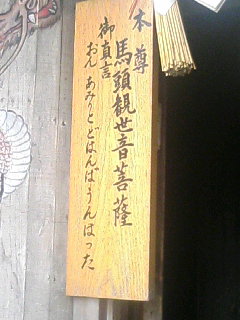 本尊
馬頭観世音菩薩
御真言
おん あみりとどはんばうんはった